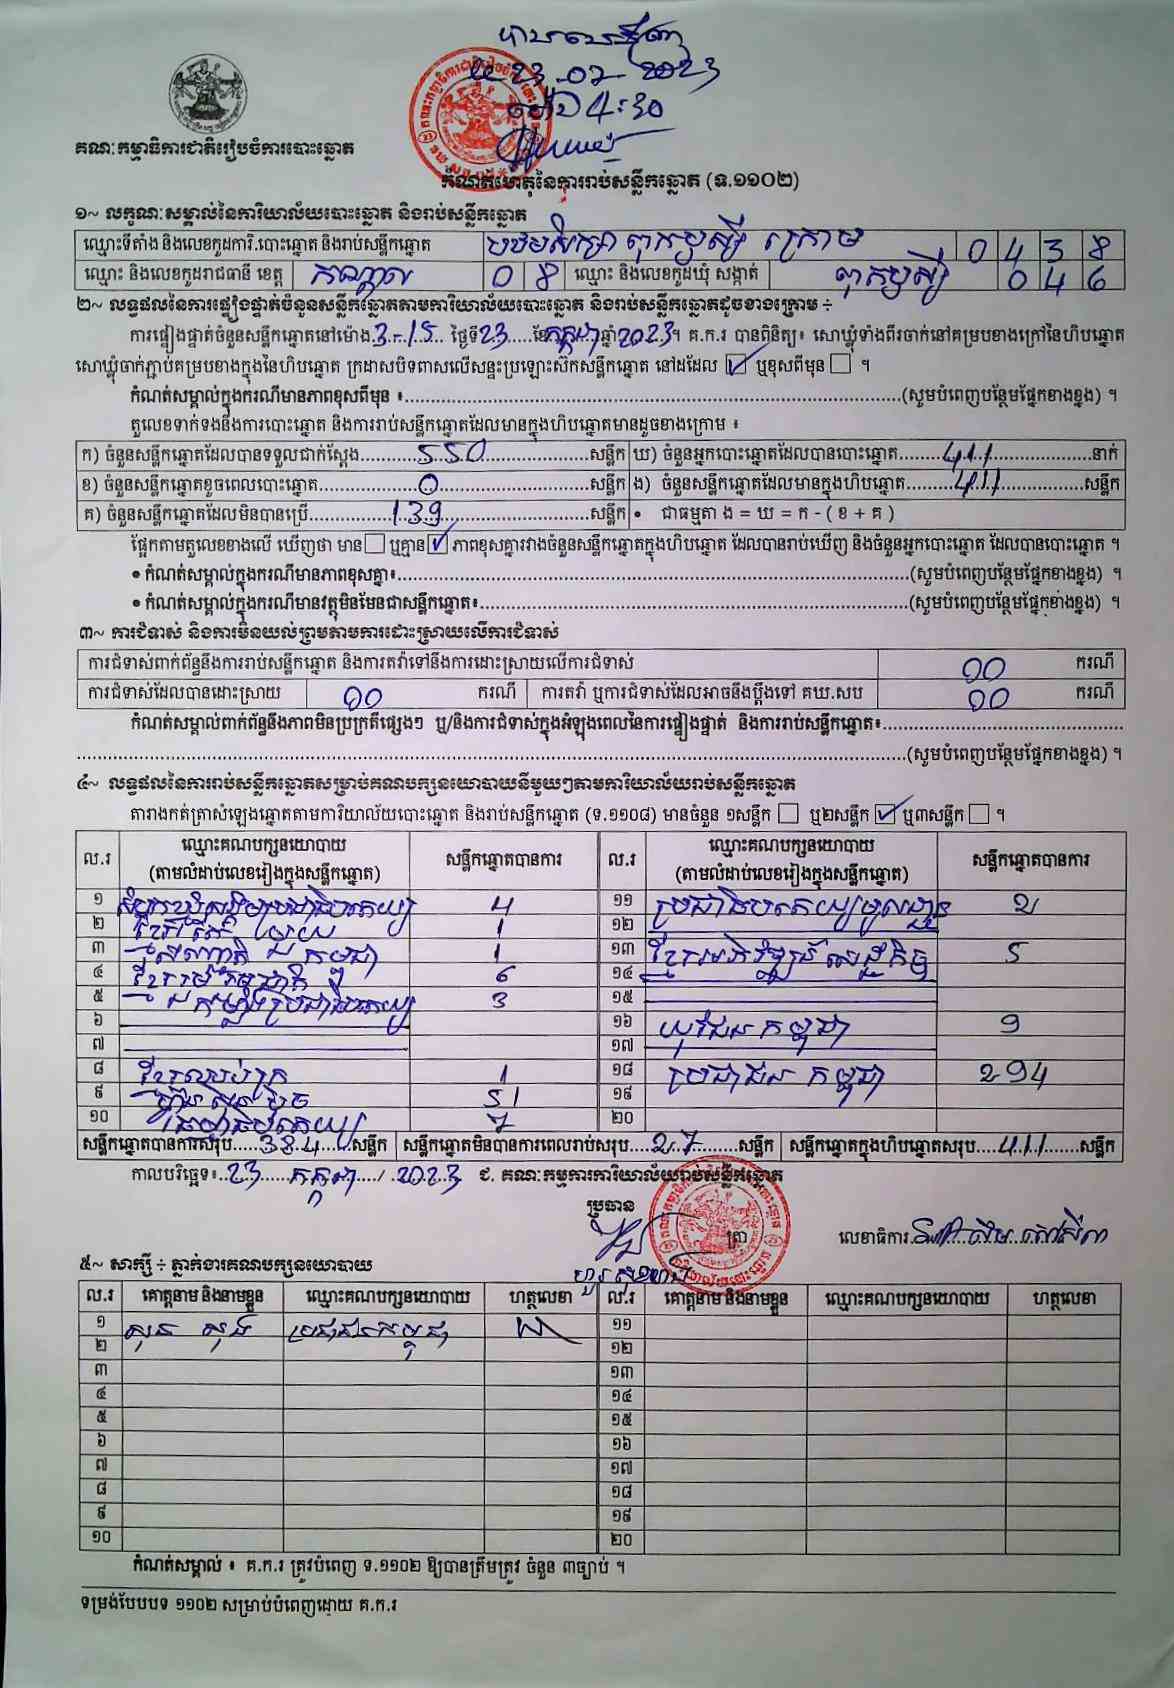 23-07-2023
ម៉ោង 4:30
គណៈកម្មាធិការជាតិរៀបចំការបោះឆ្នោត
កំណត់ហេតុនៃការរាប់សន្លឹកឆ្នោត (ទ.១១០២)
១~ លក្ខណៈសម្គាល់នៃការិយាល័យបោះឆ្នោត និងរាប់សន្លឹកឆ្នោត
ឈ្មោះទីតាំង និងលេខកូដការិ.បោះឆ្នោត និងរាប់សន្លឹកឆ្នោត បឋមសិក្សា ពុកឫស្សី ក្រោម 0 4 3 8
ឈ្មោះ និងលេខកូដរាជធានី ខេត្ត កណ្តាល 0 8 ឈ្មោះ និងលេខកូដឃុំ សង្កាត់ ពុកឫស្សី 0 4 6
២~ លទ្ធផលនៃការផ្ទៀងផ្ទាត់ចំនួនសន្លឹកឆ្នោតតាមការិយាល័យបោះឆ្នោត និងរាប់សន្លឹកឆ្នោតដូចខាងក្រោម ÷
ការផ្ទៀងផ្ទាត់ចំនួនសន្លឹកឆ្នោតនៅម៉ោង 3-15 ថ្ងៃទី 23 ខែ កក្កដា ឆ្នាំ 2023។ គ.ក.រ បានពិនិត្យ៖ សោឃ្លុំទាំងពីរចាក់នៅគម្របខាងក្រៅនៃហិបឆ្នោត
សោឃ្លុំចាក់ភ្ជាប់គម្របខាងក្នុងនៃហិបឆ្នោត ក្រដាសបិទពាសលើសន្ទះប្រឡោះស៊កសន្លឹកឆ្នោត នៅដដែល ☑ ឬខុសពីមុន ☐ ។
កំណត់សម្គាល់ក្នុងករណីមានភាពខុសពីមុន ៖ (សូមបំពេញបន្ថែមផ្នែកខាងខ្នង) ។
តួលេខទាក់ទងនឹងការបោះឆ្នោត និងការរាប់សន្លឹកឆ្នោតដែលមានក្នុងហិបឆ្នោតមានដូចខាងក្រោម ៖
ក) ចំនួនសន្លឹកឆ្នោតដែលបានទទួលជាក់ស្តែង 550 សន្លឹក ឃ) ចំនួនអ្នកបោះឆ្នោតដែលបានបោះឆ្នោត 411 នាក់
ខ) ចំនួនសន្លឹកឆ្នោតខូចពេលបោះឆ្នោត 0 សន្លឹក ង) ចំនួនសន្លឹកឆ្នោតដែលមានក្នុងហិបឆ្នោត 411 សន្លឹក
គ) ចំនួនសន្លឹកឆ្នោតដែលមិនបានប្រើ 139 សន្លឹក • ជាធម្មតា ង = ឃ = ក - ( ខ + គ )
ផ្អែកតាមតួលេខខាងលើ ឃើញថា មាន ☐ ឬគ្មាន ☑ ភាពខុសគ្នារវាងចំនួនសន្លឹកឆ្នោតក្នុងហិបឆ្នោត ដែលបានរាប់ឃើញ និងចំនួនអ្នកបោះឆ្នោត ដែលបានបោះឆ្នោត ។
• កំណត់សម្គាល់ក្នុងករណីមានភាពខុសគ្នា៖ (សូមបំពេញបន្ថែមផ្នែកខាងខ្នង) ។
• កំណត់សម្គាល់ក្នុងករណីមានវត្ថុមិនមែនជាសន្លឹកឆ្នោត៖ (សូមបំពេញបន្ថែមផ្នែកខាងខ្នង) ។
៣~ ការជំទាស់ និងការមិនយល់ព្រមតាមការដោះស្រាយលើការជំទាស់
ការជំទាស់ពាក់ព័ន្ធនឹងការរាប់សន្លឹកឆ្នោត និងការតវ៉ាទៅនឹងការដោះស្រាយលើការជំទាស់ 00 ករណី
ការជំទាស់ដែលបានដោះស្រាយ 00 ករណី ការតវ៉ា ឬការជំទាស់ដែលអាចនឹងប្តឹងទៅ គឃ.សប 00 ករណី
កំណត់សម្គាល់ពាក់ព័ន្ធនឹងភាពមិនប្រក្រតីផ្សេងៗ ឬ/និងការជំទាស់ក្នុងអំឡុងពេលនៃការផ្ទៀងផ្ទាត់ និងការរាប់សន្លឹកឆ្នោត៖
(សូមបំពេញបន្ថែមផ្នែកខាងខ្នង) ។
៤~ លទ្ធផលនៃការរាប់សន្លឹកឆ្នោតសម្រាប់គណបក្សនយោបាយនីមួយៗតាមការិយាល័យរាប់សន្លឹកឆ្នោត
តារាងកត់ត្រាសំឡេងឆ្នោតតាមការិយាល័យបោះឆ្នោត និងរាប់សន្លឹកឆ្នោត (ទ.១១០៨) មានចំនួន ១សន្លឹក ☐ ឬ២សន្លឹក ☑ ឬ៣សន្លឹក ☐ ។
ល.រ ឈ្មោះគណបក្សនយោបាយ (តាមលំដាប់លេខរៀងក្នុងសន្លឹកឆ្នោត) សន្លឹកឆ្នោតបានការ ល.រ ឈ្មោះគណបក្សនយោបាយ (តាមលំដាប់លេខរៀងក្នុងសន្លឹកឆ្នោត) សន្លឹកឆ្នោតបានការ
១ សំបុកឃ្មុំសង្គមប្រជាធិបតេយ្យ 4 ១១ ប្រជាធិបតេយ្យមូលដ្ឋាន 2
២ ខ្មែរតែមួយ 1 ១២
៣ 1 ១៣ ខ្មែរអភិវឌ្ឍន៍សេដ្ឋកិច្ច 5
៤ ខ្មែររួបរួមជាតិ 6 ១៤
៥ 3 ១៥
៦ ១៦ យុវជនកម្ពុជា 9
៧ ១៧
៨ ខ្មែរឈប់ក្រ 1 ១៨ ប្រជាជនកម្ពុជា 294
៩ ហ៊្វុនស៊ិនប៉ិច 51 ១៩
១០ ធម្មាធិបតេយ្យ 7 ២០
សន្លឹកឆ្នោតបានការសរុប 384 សន្លឹក សន្លឹកឆ្នោតមិនបានការពេលរាប់សរុប 27 សន្លឹក សន្លឹកឆ្នោតក្នុងហិបឆ្នោតសរុប 411 សន្លឹក
កាលបរិច្ឆេទ៖ 23 កក្កដា / 2023 ជ. គណៈកម្មការការិយាល័យរាប់សន្លឹកឆ្នោត
ប្រធាន
ត្រា លេខាធិការ
៥~ សាក្សី ÷ ភ្នាក់ងារគណបក្សនយោបាយ
ល.រ គោត្តនាម និងនាមខ្លួន ឈ្មោះគណបក្សនយោបាយ ហត្ថលេខា ល.រ គោត្តនាម និងនាមខ្លួន ឈ្មោះគណបក្សនយោបាយ ហត្ថលេខា
១ សុន សុង ប្រជាជនកម្ពុជា ១១
២ ១២
៣ ១៣
៤ ១៤
៥ ១៥
៦ ១៦
៧ ១៧
៨ ១៨
៩ ១៩
១០ ២០
កំណត់សម្គាល់ ៖ គ.ក.រ ត្រូវបំពេញ ទ.១១០២ ឱ្យបានត្រឹមត្រូវ ចំនួន ៣ច្បាប់ ។
ទម្រង់បែបបទ ១១០២ សម្រាប់បំពេញដោយ គ.ក.រ